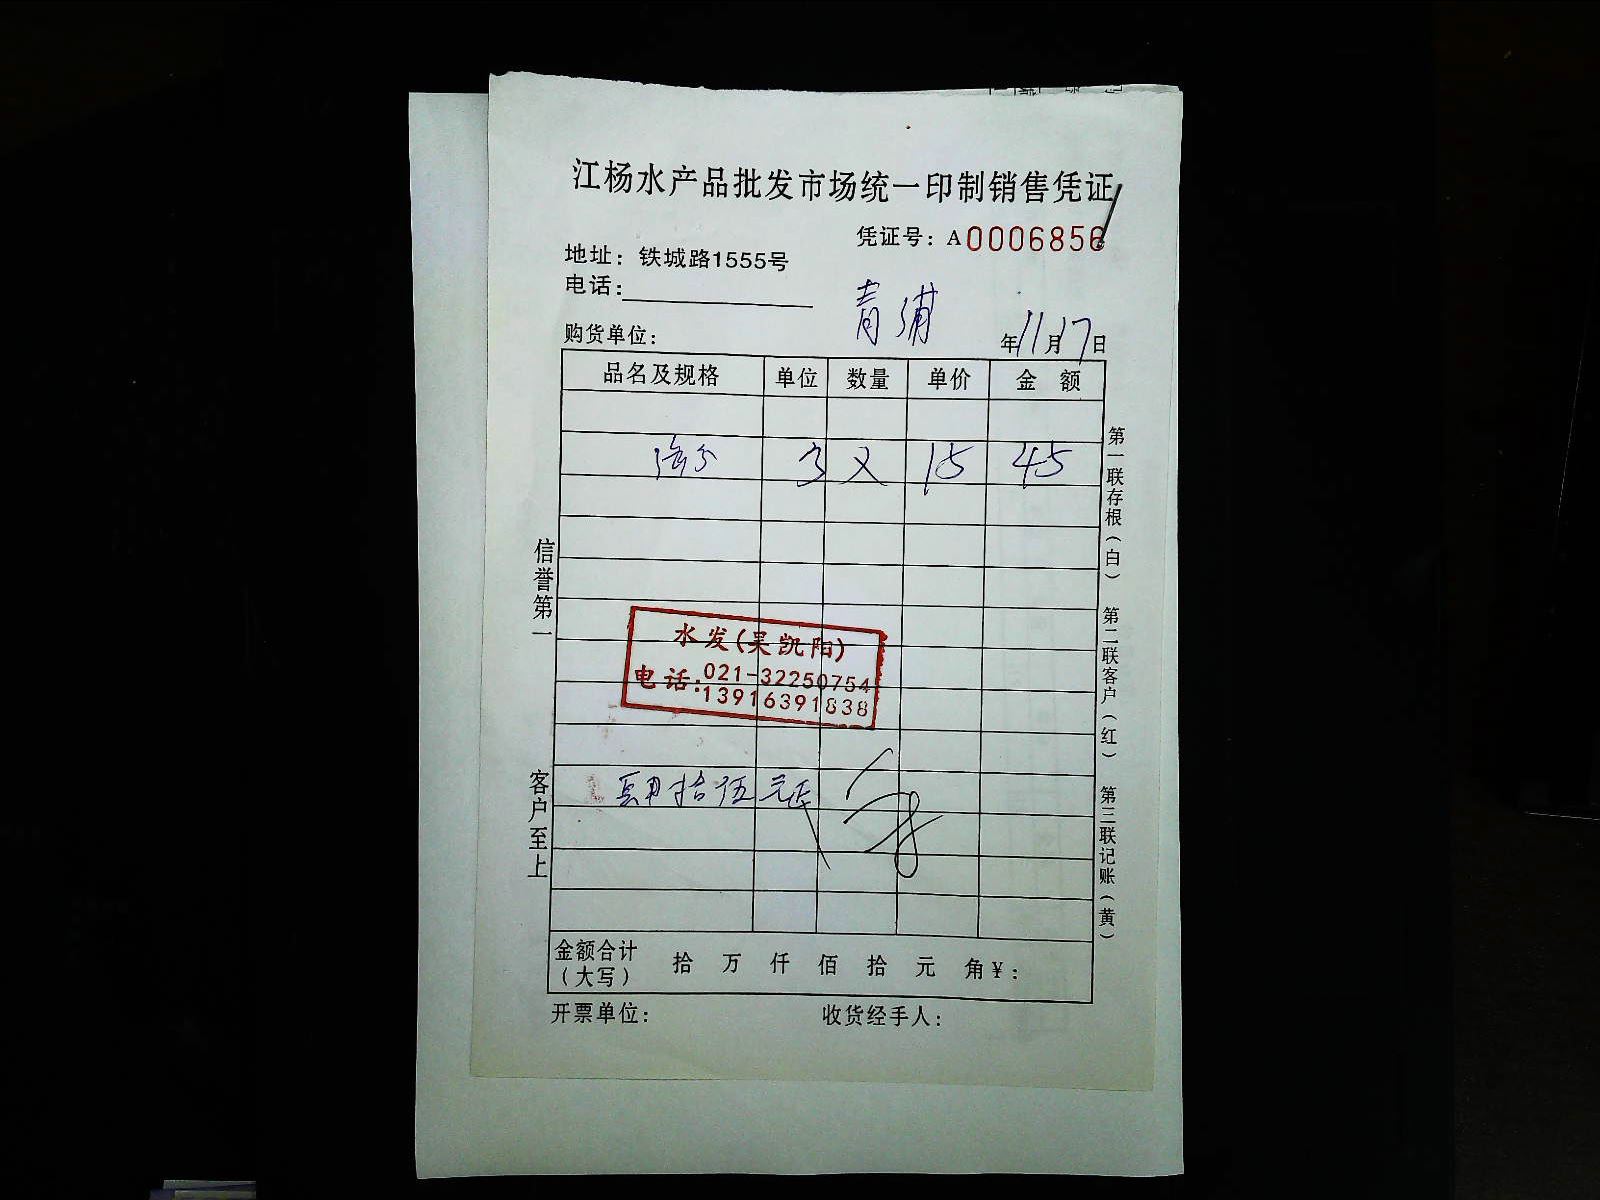 江杨水产品批发市场统一印制销售凭证
凭证号：A0006856
地址：铁城路1555号
电话：
青浦
购货单位：
年11月17日
品名及规格 单位 数量 单价 金额
3 15 45
水发(吴凯阳)
电话:021-32250754
13916391838
肆拾伍元正
金额合计（大写） 拾 万 仟 佰 拾 元 角￥：
开票单位： 收货经手人：
信誉第一
客户至上
第一联存根（白） 第二联客户（红） 第三联记账（黄）